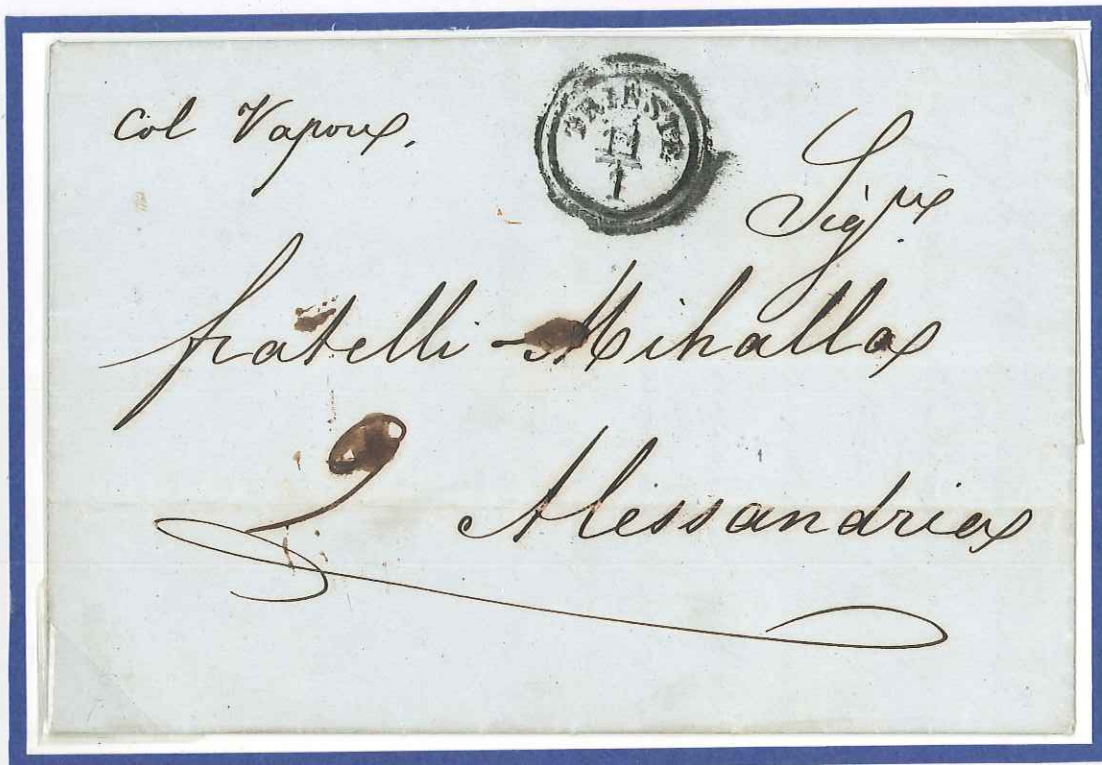 col Vapore.
TRIESTE
11
1
Sigri
fratelli Mihalla
9 Alessandria